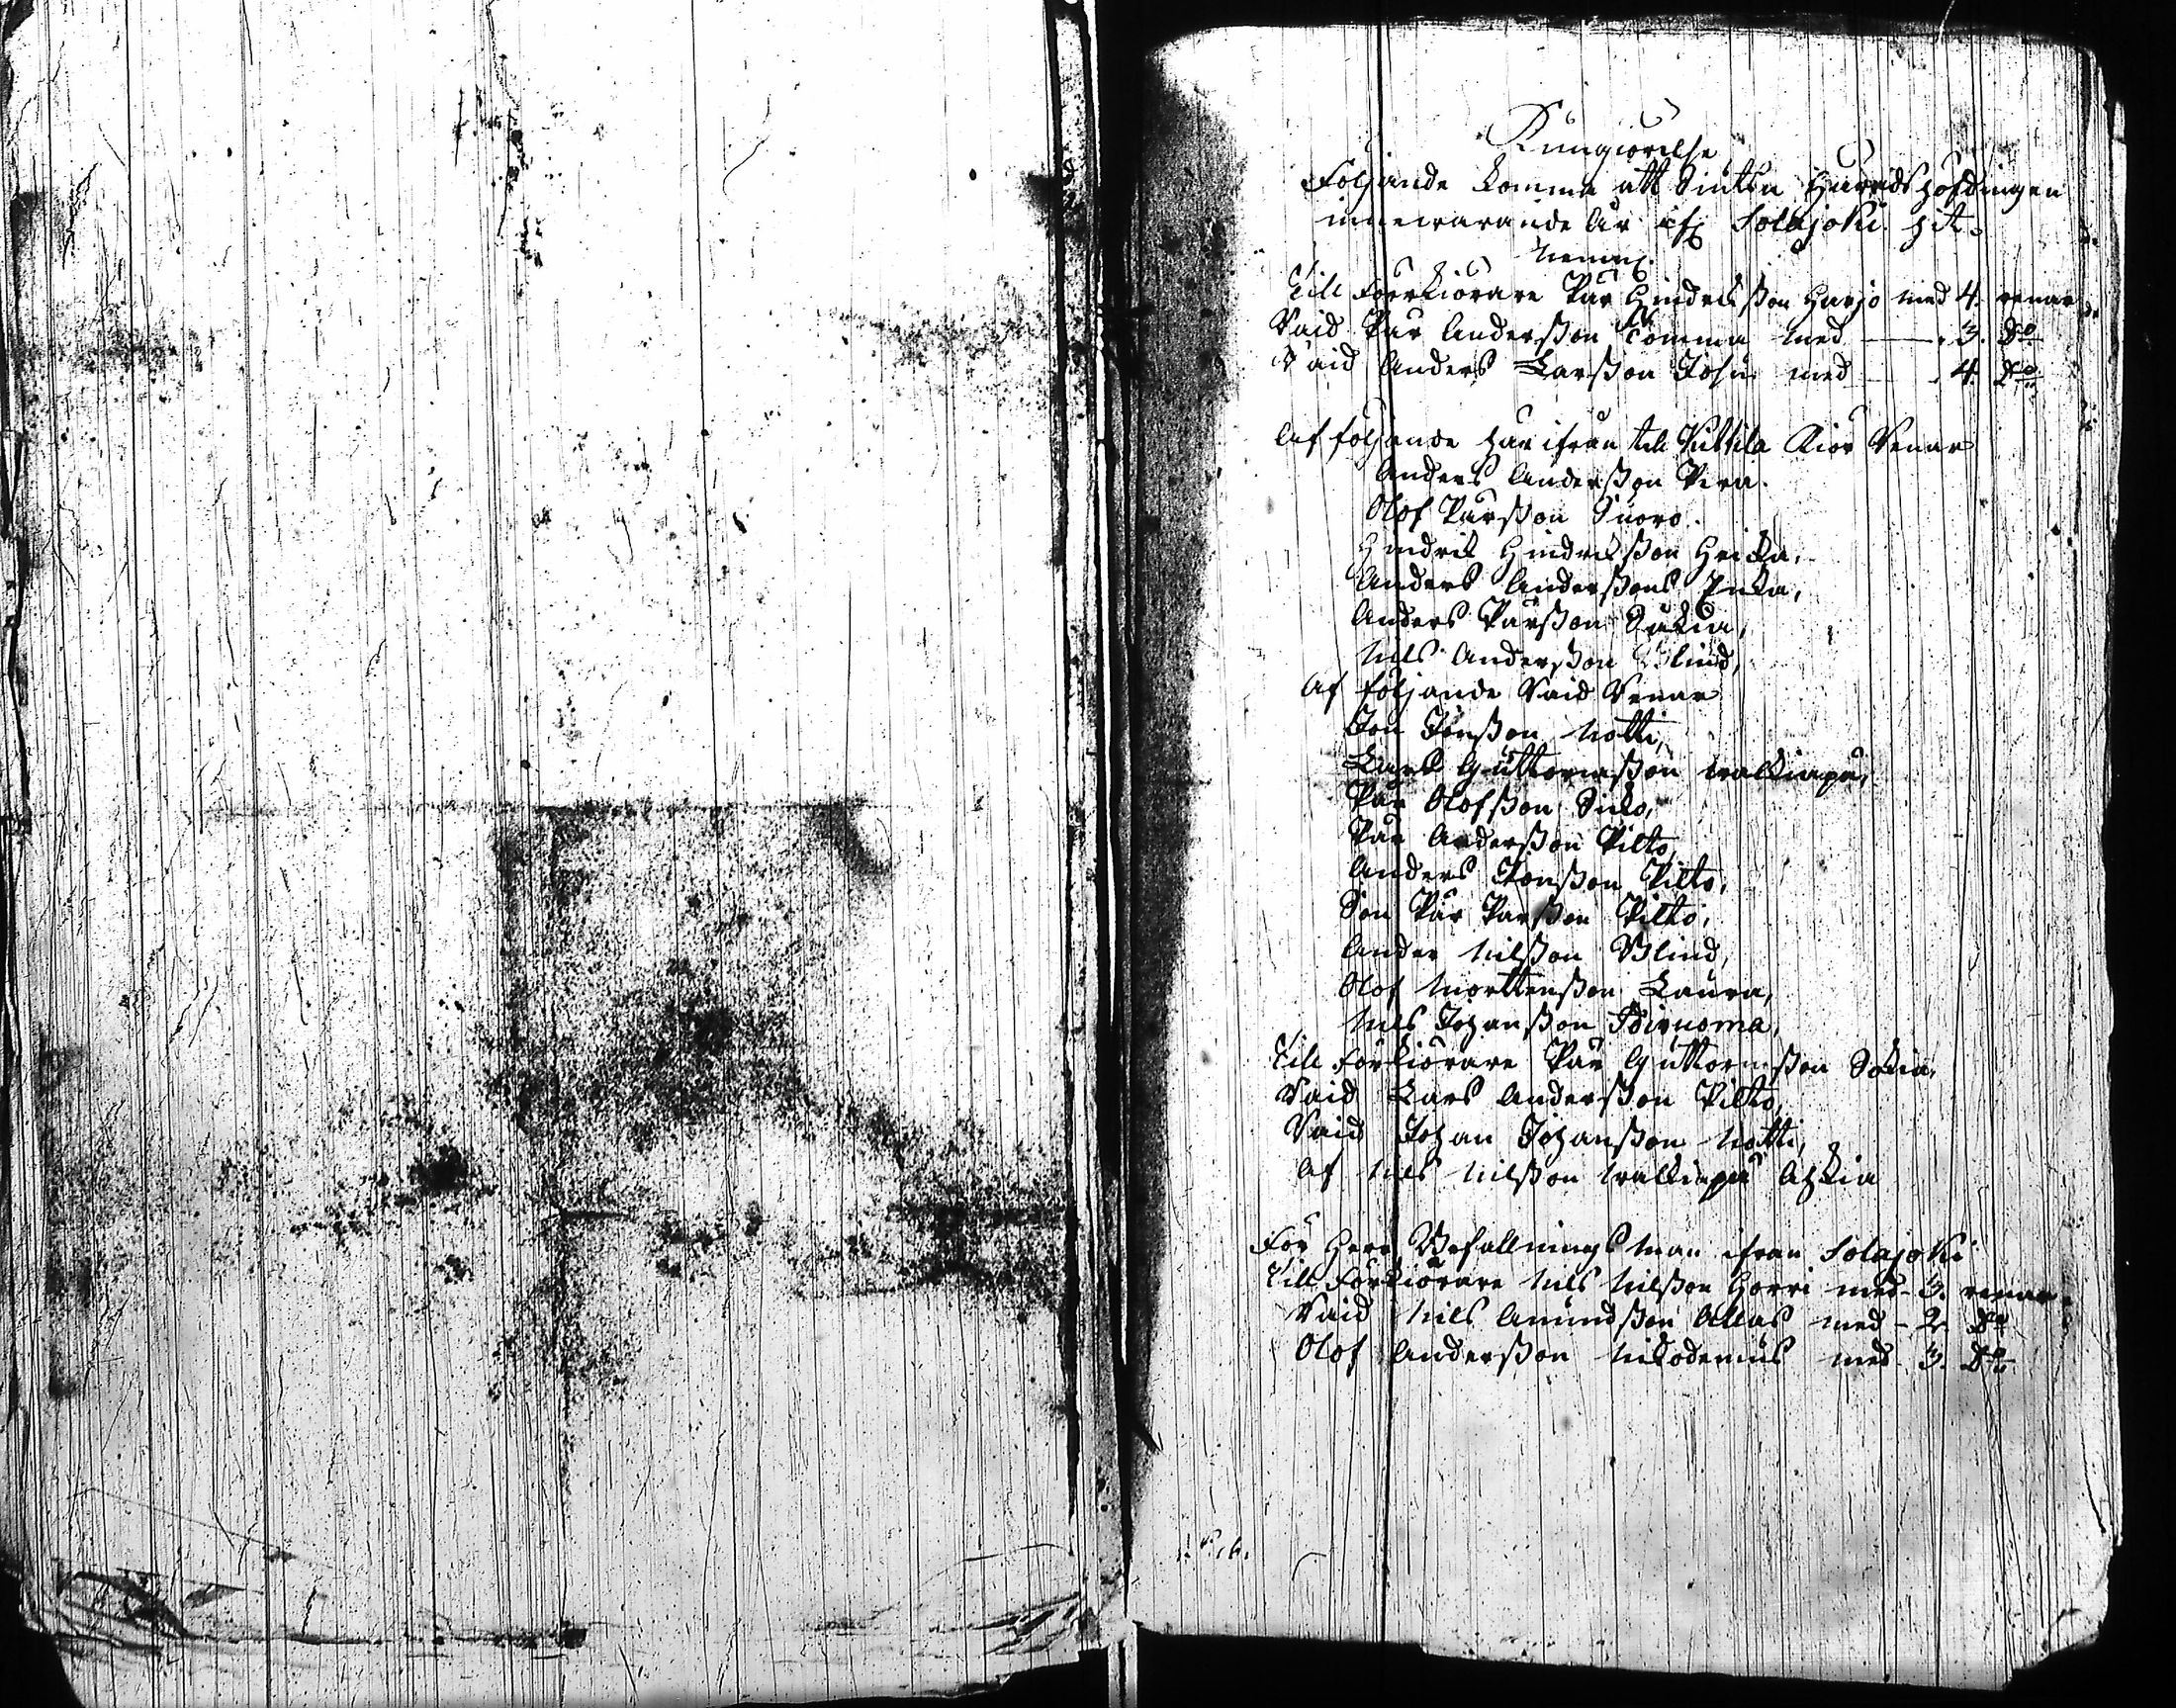 Kungiörelse
Följande komma att Siutsa Häradshöfdingen
innewarande År ifr Solajoki hit.
Neml.
Till Förekiörare Pär Hindrichsson Harjo med 4. renar
Raid Pär Andersson Tomma med — 3. Do
Raid Anders Larsson Josu med — 4. Do
Af följande här ifrån till Kuttila Kiör Renar
Anders Andersson Vera.
Olof Pärsson Suoro.
Hindrik Hindriksson Heicka,
Anders Anderssons Inka,
Anders Pärsson Sukia,
Nils Andersson Blind,
Af följande Raid Renar
Jon Jonsson Notti,
Lars Guttormsson Walkiapä,
Pär Olofsson Siko,
Pär Andersson Pilto,
Anders Jonsson Pilto,
Son Pär Pärsson Pilto,
Anders Nilsson Blind,
Olof Morttensson Laura,
Nils Johansson
Till Förkiörare Pär Guttormsson Sokia,
Raid Lars Andersson Pilto,
Raid Johan Johansson Notti,
Af Nils Nilsson Walkiapä Ahkia
För Herr Befallningsman ifrån Solajoki
Till Förkiörare Nils Nilsson Horri med 3. renar
Raid Nils Amundsson Allas med - 2. Do
Olof Andersson Nikodemus med 3. Do